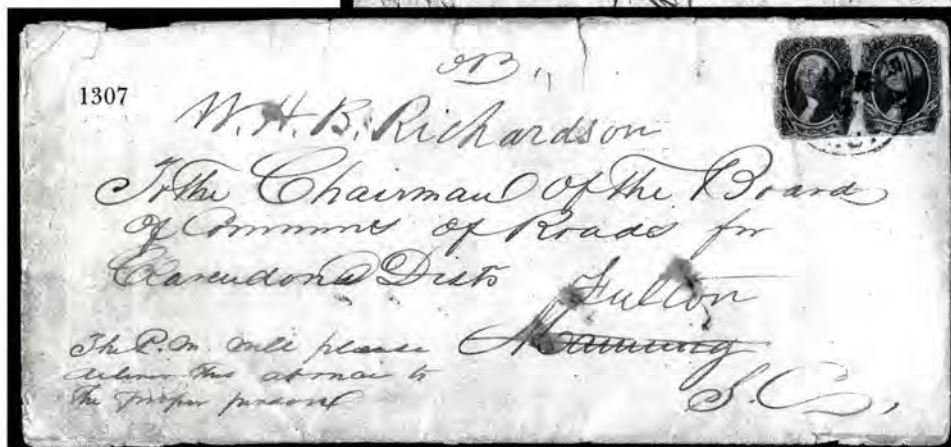 1307
W. H. B. Richardson
To the Chairman Of the Board
of Commrs of Roads for
Clarendon Dists
Fulton
Manning
S.C,
The P.M. will please
deliver this at once to
the proper person